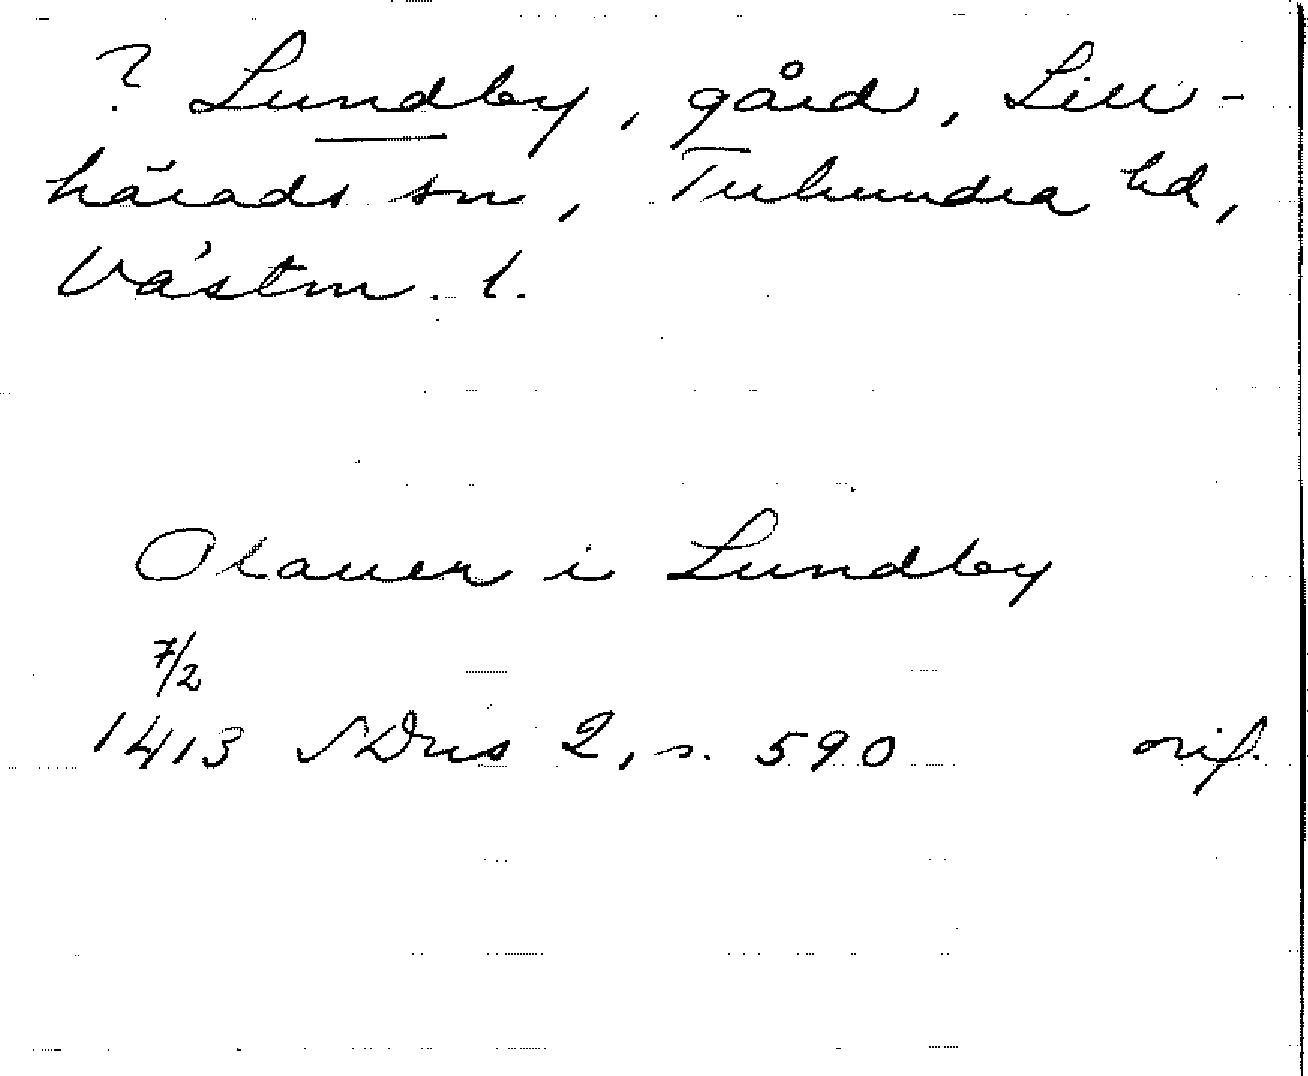 ? Lundby, gård, Lill-
härads sn, Tuhundra hd,
Västm. l.
Olauer i Lundby
7/2
1413 SDns 2, s. 590 orig.